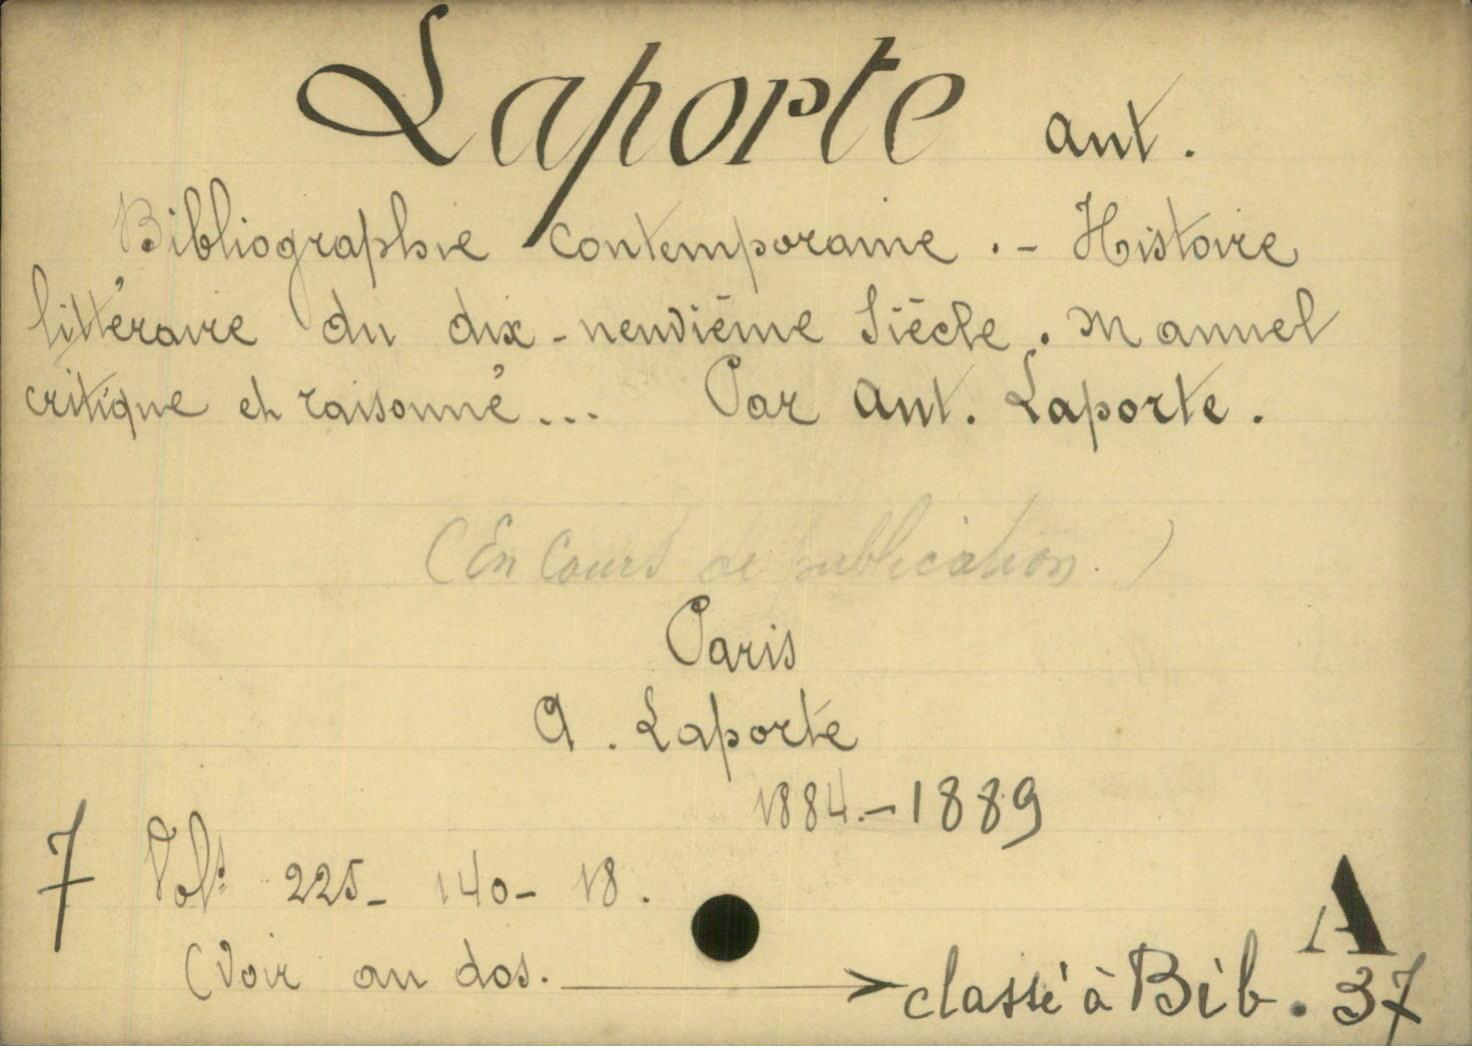 Laporte ant.
Bibliographie contemporaine. - Histoire
littéraire du dix-neuvième Siècle. Manuel
critique et raisonné... Par ant. Laporte.
(En Cours de publication.)
Paris
A. Laporte
1884.-1889
7 Vols 225- 140- 18.
A
(Voir au dos. → classé à Bib. 37